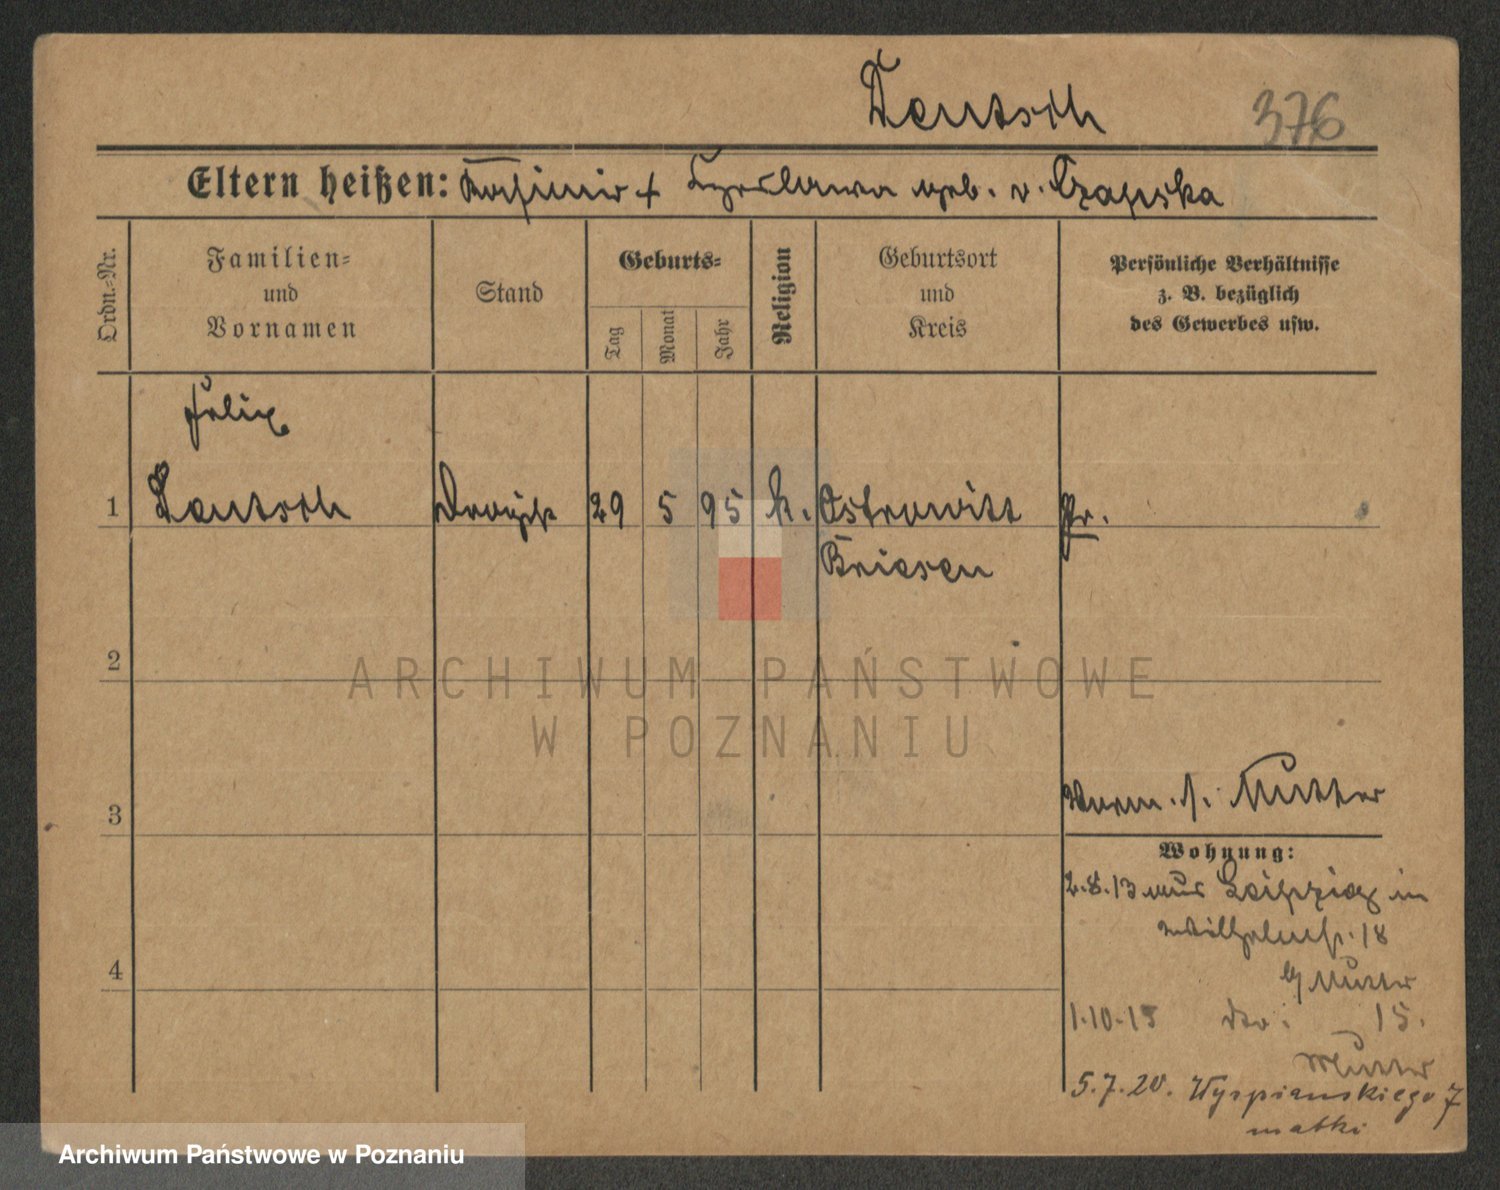 Deutsch 376
Eltern heißen: Kasimir + geb. v. Czapska
Ordn.=Nr.
Familien=
und
Vornamen
Stand
Geburts=
Tag
Monat
Jahr
Religion
Geburtsort
und
Kreis
Persönliche Verhältnisse
z. B. bezüglich
des Gewerbes usw.
Felix
1 Deutsch 29 5 95 k. Ostrowitt Pr.
Briesen
2
ARCHIWUM PAŃSTWOWE
W POZNANIU
3 Mutter
Wohnung:
2.8.13 aus Leipzig in
Wilhelmstr. 18
b/ Mutter
1.10.15 do: 15.
Mutter
4
5.7.20. Wyspianskiego 7
matki
Archiwum Państwowe w Poznaniu